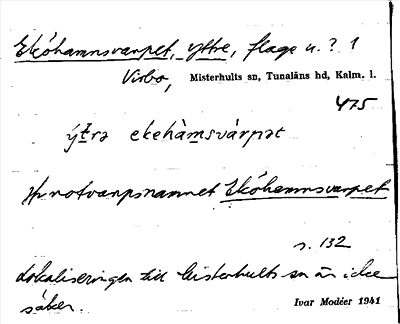 Eköhamnsvarpet, yttre, flage u. ? 1
Virbo, Misterhults sn, Tunaläns hd, Kalm. l.
475
ýtrə ekehàmsvárpət
Jfr notvarpsnamnet Eköhamnsvarpet
s. 132
Lokaliseringen till Misterhults sn är icke
säker.
Ivar Modéer 1941